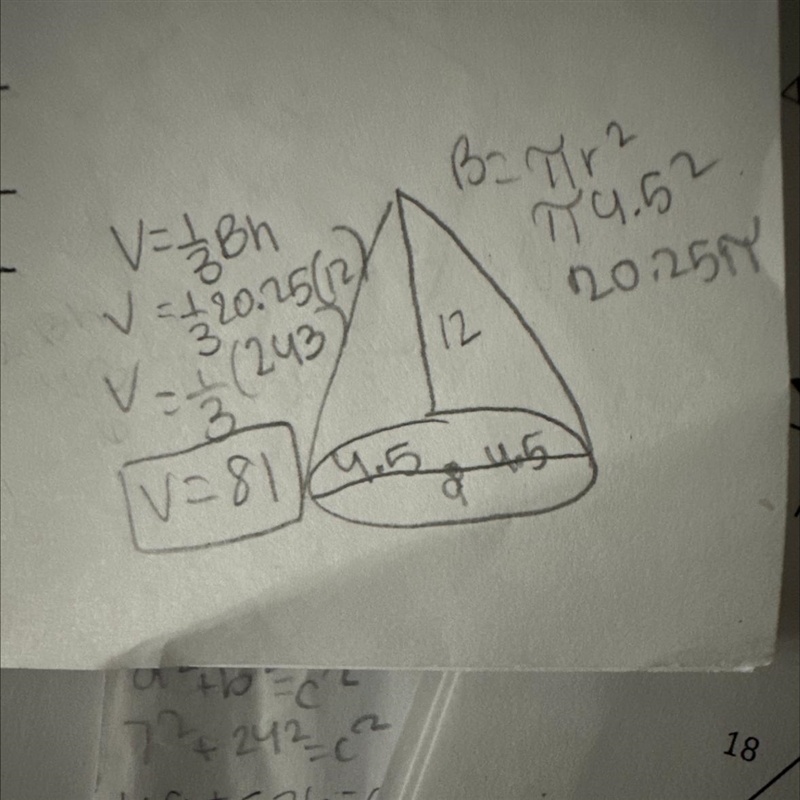 B=πr²
π4.5²
20.25π
V=1/3Bh
V=1/3 20.25(12)
V=1/3(243)
V=81
12
4.5 4.5
9
a²+b²=c²
7²+24²=c²
18